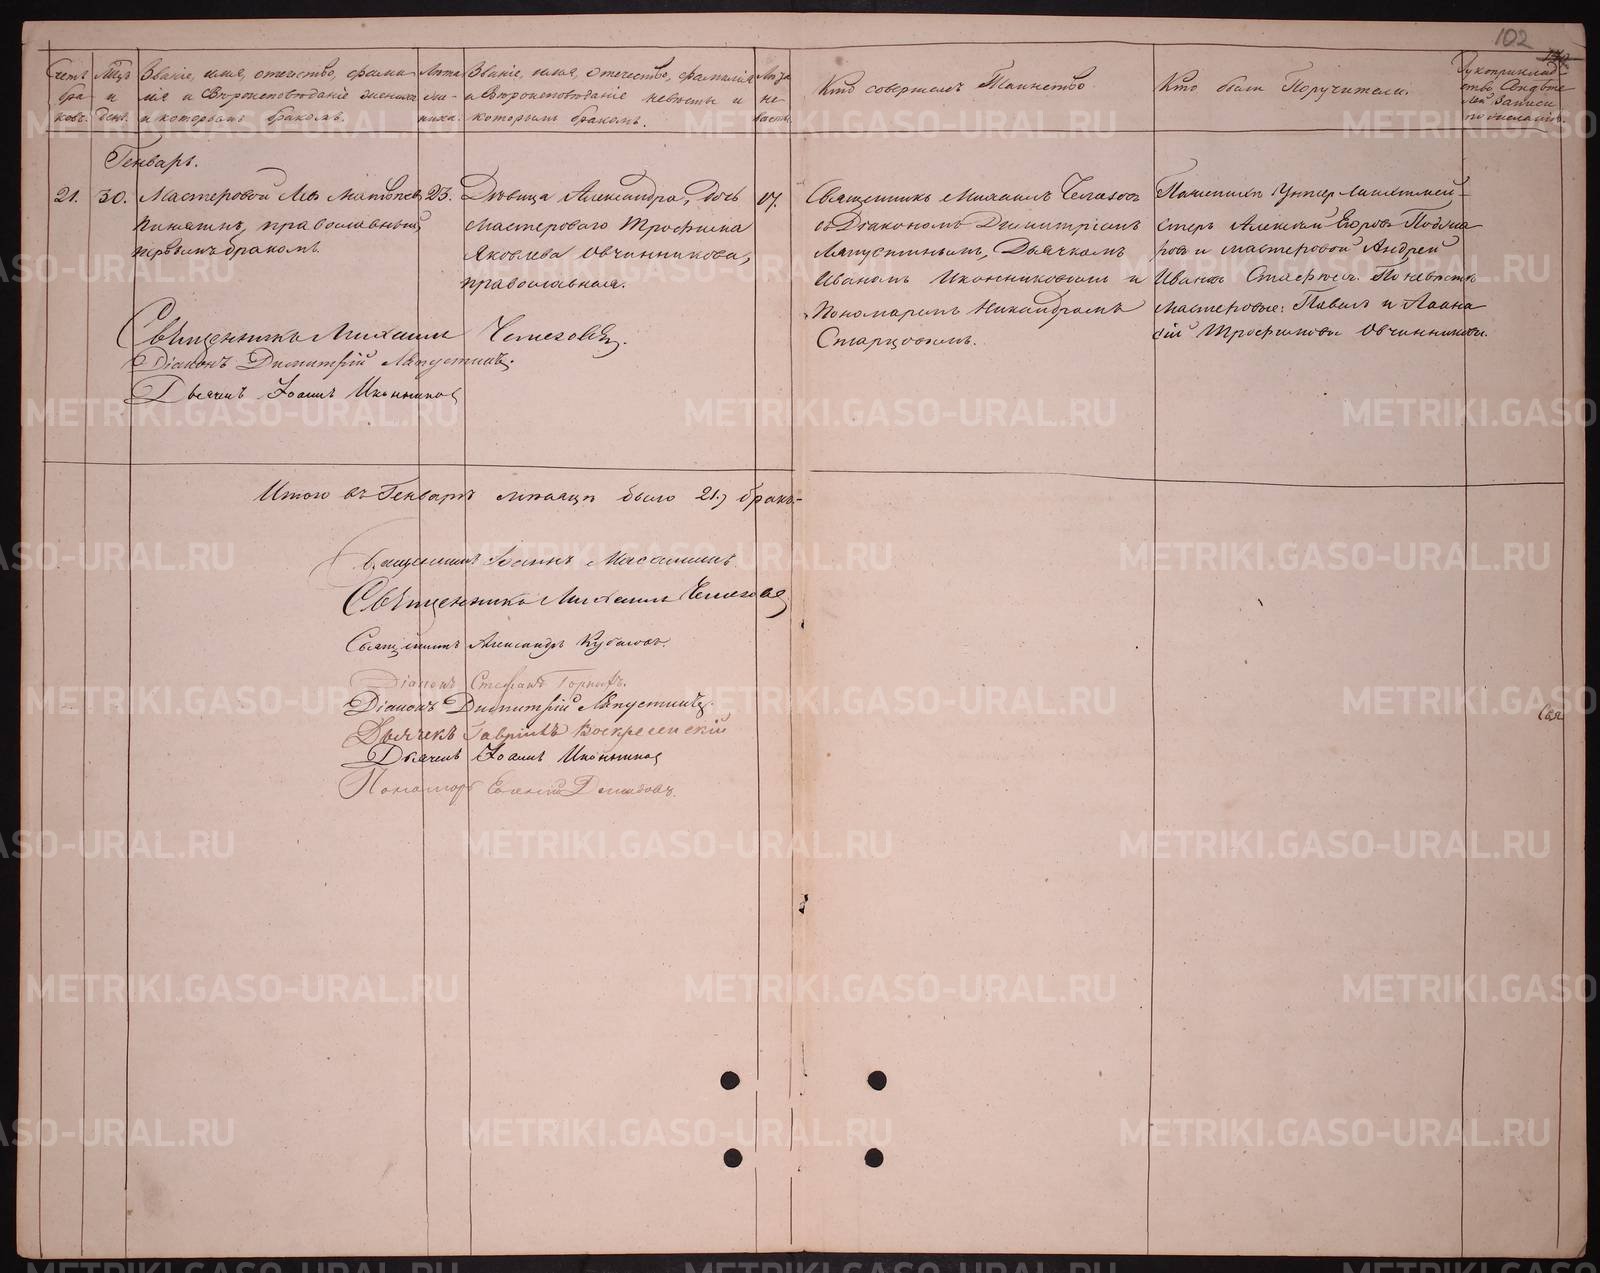 102
Счетъ бра- ковъ.
Мѣц. и день.
Званіе, имя, отечество, фами-
лія и Вѣроисповѣданіе жениха
и которымъ бракомъ.
Лѣта же- ниха.
Званіе, имя, отечество, фамилія
и Вѣроисповѣданіе невѣсты и
которымъ бракомъ.
Лѣта не- вѣсты.
Кто совершалъ Таинство
Кто были Поручители.
Рукоприклад-
ство Свидѣте
лей Записи
по желанію.
Генварь.
21.
30.
Мастеровой
православный
первымъ бракомъ.
23.
Дѣвица Александра, дочь
мастероваго Трофима
Яковлева Овчинникова,
православная.
17.
Священникъ Михаилъ
съ Діакономъ Димитріемъ
Ляпустинымъ, Дьячкомъ
Иваномъ Иконниковымъ и
Пономаремъ Никандромъ
Старцовымъ.
По женихѣ Унтер
Алексѣй Егоровъ
и мастеровой Андрей
Ивановъ По невѣстѣ
мастеровые: Павелъ и
Трофимовы Овчинниковы.
Священникъ Михаилъ
Діаконъ Димитрій Ляпустинъ.
Дьячекъ Іоаннъ Иконниковъ
Итого въ Генварѣ мѣсяцѣ было 21, бракъ.
Священникъ Іоаннъ
Священникъ Михаилъ
Священникъ Александръ
Діаконъ Стефанъ
Діаконъ Димитрій Ляпустинъ.
Дьячекъ Гавріилъ Воскресенскій
Дьячекъ Іоаннъ Иконниковъ
Пономарь Евгеній Демидовъ.
METRIKI.GASO-URAL.RU